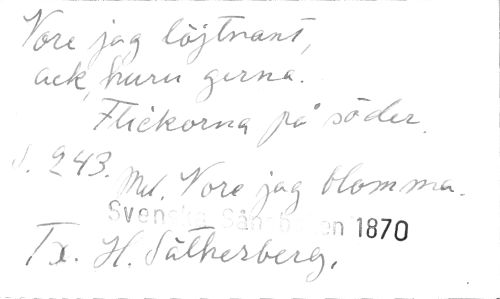 Vore jag löjtnant,
ack, huru gerna.
Flickorna på söder.
s. 243.
Mel. Vore jag blomma.
Svenska Sångboken 1870
Tx. H. Sätherberg.